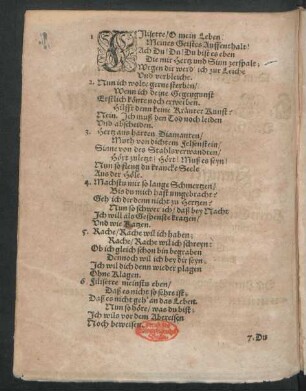 1. FIlisette/ O mein Leben
Meines Geistes Auffenthalt/
Ach Du/ Du/ Du bist es eben
Die mir Hertz und Sinn zerspalt/
Wegen dir werd' ich zur Leiche
Und verbleiche.
2. Nun ich wolte gerne sterben/
Wenn ich deine Gegengunst
Erstlich könte noch erwerben.
Hilfft denn keine Kräuter Kunst?
Nein. Ich muß den Tod noch leiden
Und abscheiden.
3. Hertz aus harten Diamanten/
Muth von dichtem Felsenstein/
Sinne von des Stahls verwandten/
Hört zu letzt/ Hört! Muß es seyn/
Nun so fleug du krancke Seele
Aus der Höle.
4. Machstu mir so lange Schmertzen/
Bis du mich hast umgebracht:
Geh ich dir denn nicht zu Hertzen/
Nun so schwer ich/ daß bey Nacht
Ich will als Gespenste kratzen/
Und wie Katzen.
5. Rache/ Rache wil ich haben:
Rache/ Rache wil ich schreyn:
Ob ich gleich schon bin begraben
Dennoch wil ich bey dir seyn.
Ich wil dich denn wieder plagen
Ohne Klagen.
6. Filisette meinstu eben/
Daß es nicht so sehre ist:
Daß es nicht geh' an das Leben.
Nun so höre/ was du bist:
Ich wils vor dem Abreisen
Noch beweisen.
7. Du